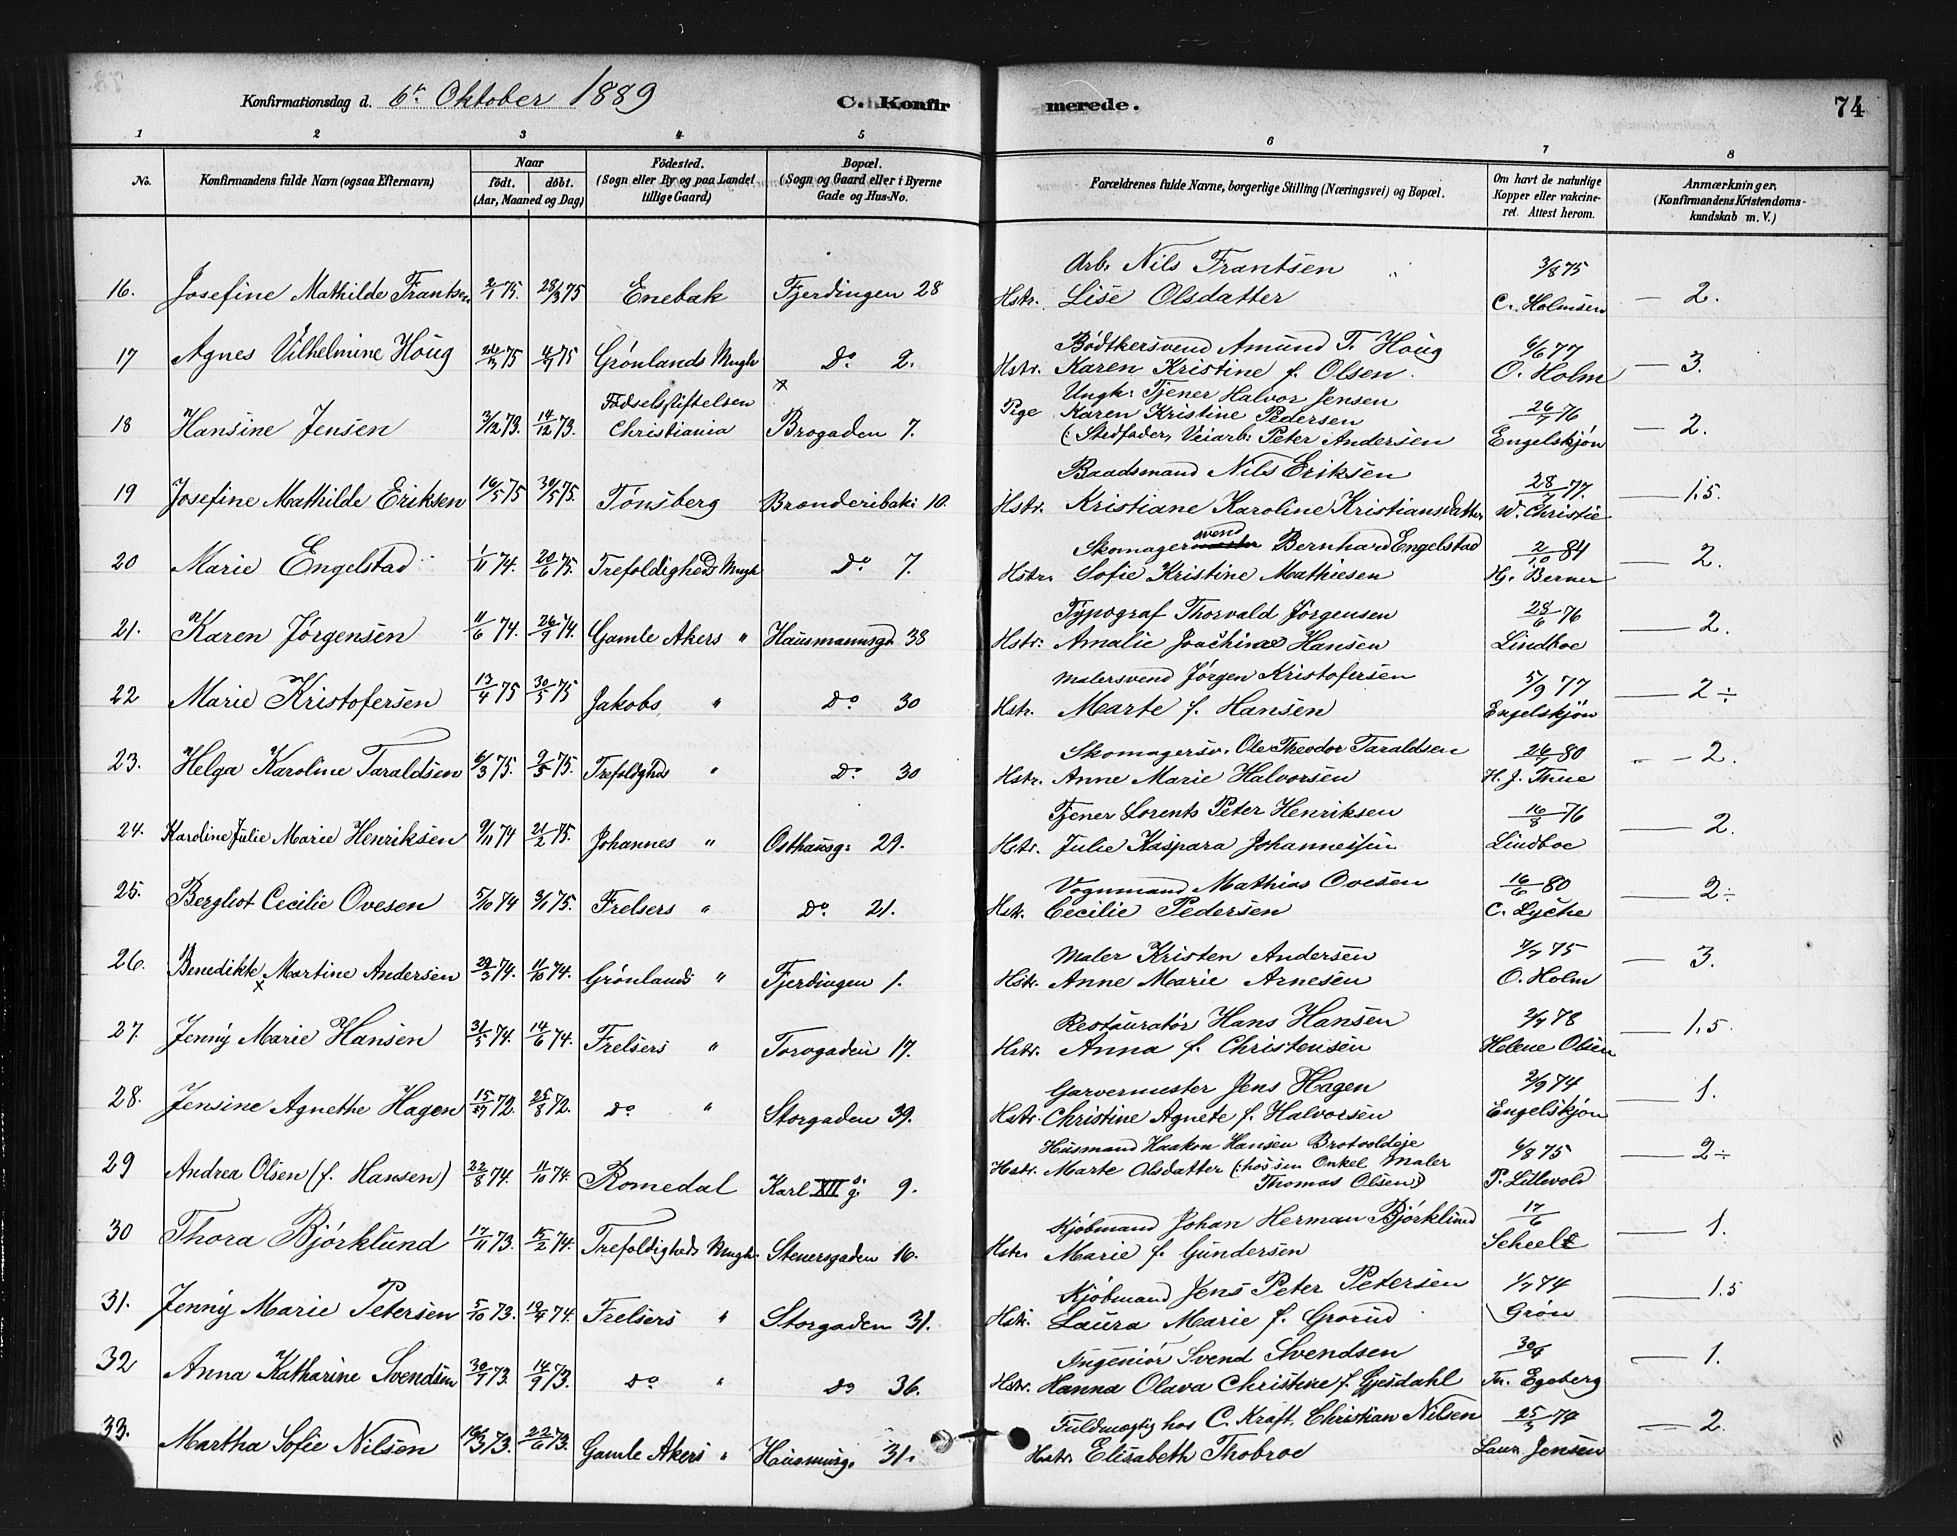 Konfirmationsdag d. 6te Oktober 1889 C. Konfirmerede. 74
1 2 3 4 5 6 7 8
No. Konfirmandens fulde Navn (ogsaa Efternavn) Naar født. døbt. (Aar, Maaned og Dag) Fødested. (Sogn eller By og paa Landet tillige Gaard) Bopæl. (Sogn og Gaard eller i Byerne Gade og Hus-No. Forældrenes fulde Navne, borgerlige Stilling (Næringsvei) og Bopæl. Om havt de naturlige Kopper eller vakcineret. Attest herom. Anmærkninger. (Konfirmandens Kristendomskundskab m. V.)
Arb. Nils Frantsen 3/8 75
16. Josefine Mathilde Frantsen 2/1 75. 28/3 75 Enebak Fjerdingen 28 Hstr. Lise Olsdatter C. Holmsen — 2.
Bødtkersvend Amund T. Houg 6/6 77
17 Agnes Vilhelmine Houg 75 75 Grønlands Mngh Do 2. Hstr. Karen Kristine f. Olsen. O. Holm — 3.
Ungk. Tjener Halvor Jensen
18 Hansine Jensen 3/12 73. 14/12 73. Fødselsstiftelsen Christiania Brogaden 7. Pige Karen Kristine Pedersen 26/7 76
(: Stedfader, Veiarb: Peter Andersen Engelskjøn — 2.
Baadsmand Nils Eriksen 28/7 77.
19 Josefine Mathilde Eriksen 16/5 75 30/5 75. Tønsberg Branderibak: 10. Hstr. Kristiane Karoline Kristiansdatter W. Christie — 1,5.
Skomagersvend Bernhard Engelstad 2/10 84
20 Marie Engelstad 1/11 74. 20/6 75. Trefoldigheds Mngh Do 7. Hstr. Sofie Kristine Mathiesen Hj. Berner — 2.
Typograf Thorvald Jørgensen 28/6 76
21. Karen Jørgensen 11/6 74. 26/7 74. Gamle Akers " Hausmannsgd 38 Hstr: Amalie Joachine Hansen Lindboe — 2.
Malersvend Jørgen Kristofersen 5/9 77
22 Marie Kristofersen 13/4 75 30/5 75 Jakobs " Do 30 Hstr. Marte f. Hansen Engelskjøn — 2÷
Skomagersv. Ole Theodor Taraldsen 80
23. Helga Karoline Taraldsen 6/3 75. 9/5 75. Trefoldighd " Do 30 Hstr. Anne Marie Halvorsen H. J. Thue — 2.
Tjener Lorents Peter Henriksen 16/8 76
24. Karoline Julie Marie Henriksen 9/11 74 21/2 75. Johannes " Osthausg: 29. Hstr. Julie Kaspara Johannessen Lindboe — 2.
Vognmand Mathias Ovesen 16/6 80
25. Bergliot Cecilie Ovesen 5/10 74 75. Frelsers " Do 21. Hstr. Cecilie Pedersen C. Lyche — 2÷
Maler Kristen Andersen 7/7 75
26. Benedikte x Martine Andersen 29/3 74. 11/10 74. Grønlands " Fjerdingen 1. Hstr. Anne Marie Arnesen O. Holm — 3.
Restauratør Hans Hansen 2/7 78
27. Jenny Marie Hansen 31/5 74. 14/6 74. Frelsers " Torvgaden 17. Hstr. Anna f. Christensen Helene Olsen — 1,5.
Garvermester Jens Hagen 2/9 74
28. Jensine Agnethe Hagen 72. 25/8 72. do " Storgaden 39. Hstr. Christine Agnete f. Halvorsen Engelskjøn — 1.
Husmand Haakon Hansen Brotvoldeje 6/8 75
29 Andrea Olsen (f. Hansen) 22/8 74. 11/10 74. Romedal Karl XII's g. 9. Hstr. Marte Olsdatter (: hos sin Onkel Maler — 2÷
Thomas Olsen :) P. Lillevold
Kjøbmand Johan Herman Bjørklund 17/6
30 Thora Bjørklund 17/11 73. 15/2 74. Trefoldigheds Mngh. Stenersgaden 16. Hstr. Marie f. Gundersen Scheel — 1.
Kjøbmand Jens Peter Petersen 1/7 74
31. Jenny Marie Petersen 5/10 73. 74. Frelsers " Storgaden 31. Hstr. Laura Marie f. Grorud Grøn — 1.5
Ingeniør Svend Svendsen
32 Anna Katharine Svendsen 73. 14/9 73. do " do 36. Hstr. Hanna Olava Christine f. Gjesdahl Th. Egeberg — 1.
Fuldmægtig hos C. Kraft, Christian Nilsen 74
33. Martha Sofie Nilsen 16/3 73. 22/6 73. Gamle Akers " Hausmnsg. 31. Hstr. Elisabeth Thobroe Laur. Jensen — 2.